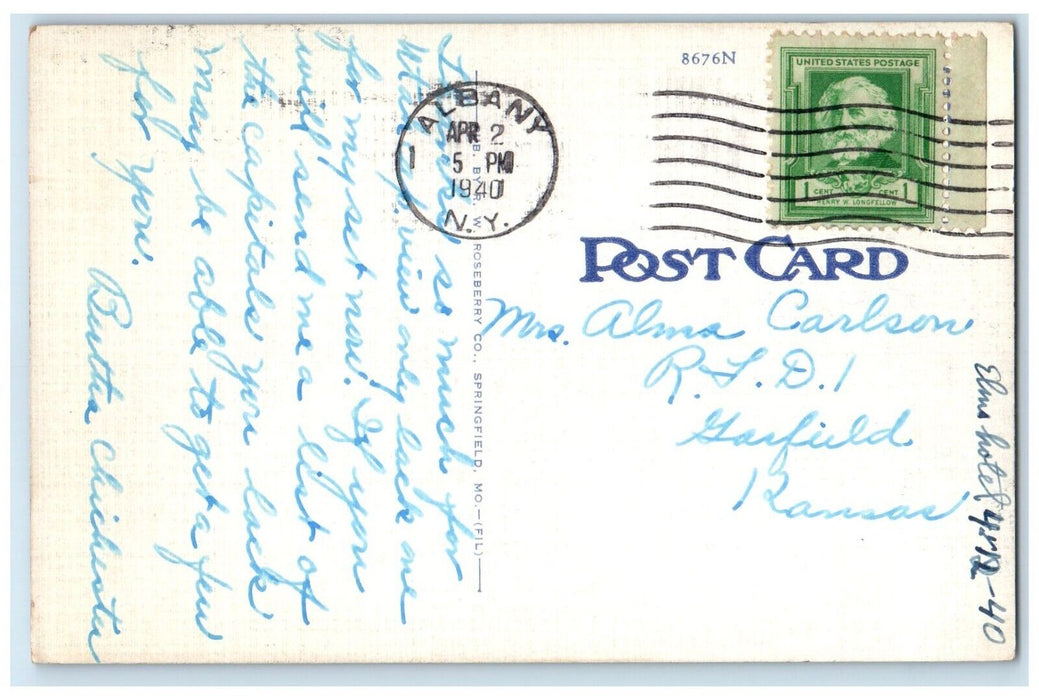 8676N
UNITED STATES POSTAGE
1 CENT CENT 1
HENRY W. LONGFELLOW
ALBANY
APR 2
5 PM
1940
N.Y.
1
POST CARD
Mrs. Alma Carlson
R.F.D. 1
Garfield
Kansas
Elms hotel
-40
ROSEBERRY CO., SPRINGFIELD, MO.—(FIL)
so much for
Utah view only lack one
for my set now. If you
will send me a list of
the capitals you lack
may be able to get a few
for you.
Bertha Chichester